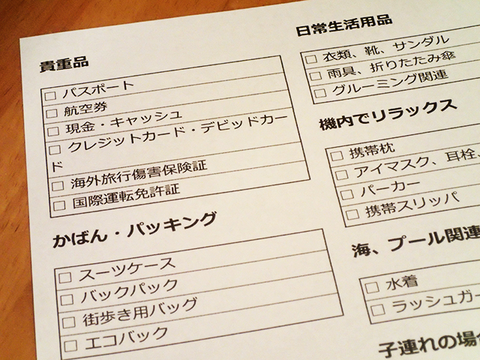 貴重品
□ パスポート
□ 航空券
□ 現金・キャッシュ
□ クレジットカード・デビッドカー
ド
□ 海外旅行傷害保険証
□ 国際運転免許証
かばん・パッキング
□ スーツケース
□ バックパック
□ 街歩き用バッグ
□ エコバック
日常生活用品
□ 衣類、靴、サンダル
□ 雨具、折りたたみ傘
□ グルーミング関連
機内でリラックス
□ 携帯枕
□ アイマスク、耳栓、
□ パーカー
□ 携帯スリッパ
海、プール関連
□ 水着
□ ラッシュガー
子連れの場合